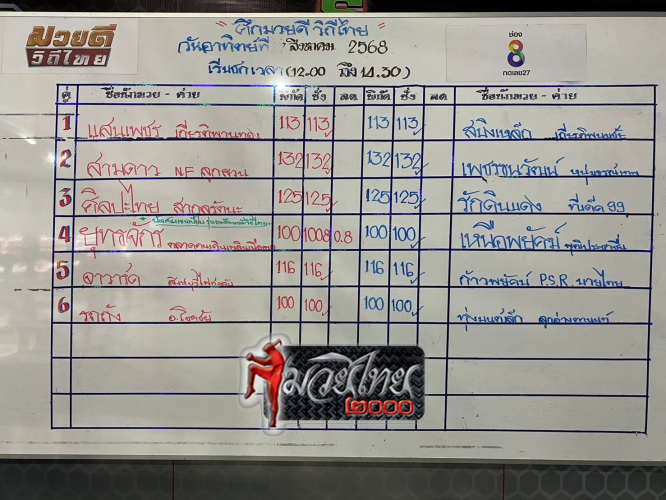 มวยดี
วิถีไทย
"ศึกมวยดี วิถีไทย"
วันอาทิตย์ที่ สิงหาคม 2568
เริ่มชกเวลา (12.00 ถึง 14.30)
ช่อง
8
กดเลข27
คู่ ชื่อนักมวย - ค่าย พิกัด ชั่ง ลด พิกัด ชั่ง ลด ชื่อนักมวย - ค่าย
1 แสนเพชร 113 113 113 113 สนิมเหล็ก
2 สามดาว NF ลูกสวน 132 132 132 132 เพชรชนวัฒน์
3 ศิลปะไทย สากลรัตนะ 125 125 125 125 รักดินแดง ทีเด็ด99
4 ยุทธจักร 100 100.8 0.8 100 100 เหนือพยัคฆ์
5 อาวาร์ด 116 116 116 116 ก้าวพยัคฆ์ P.S.R. มวยไทย
6 รถถัง อ.โชคชัย 100 100 100 100 ทุ่งมนต์เล็ก
มวยไทย
๒๐๐๐